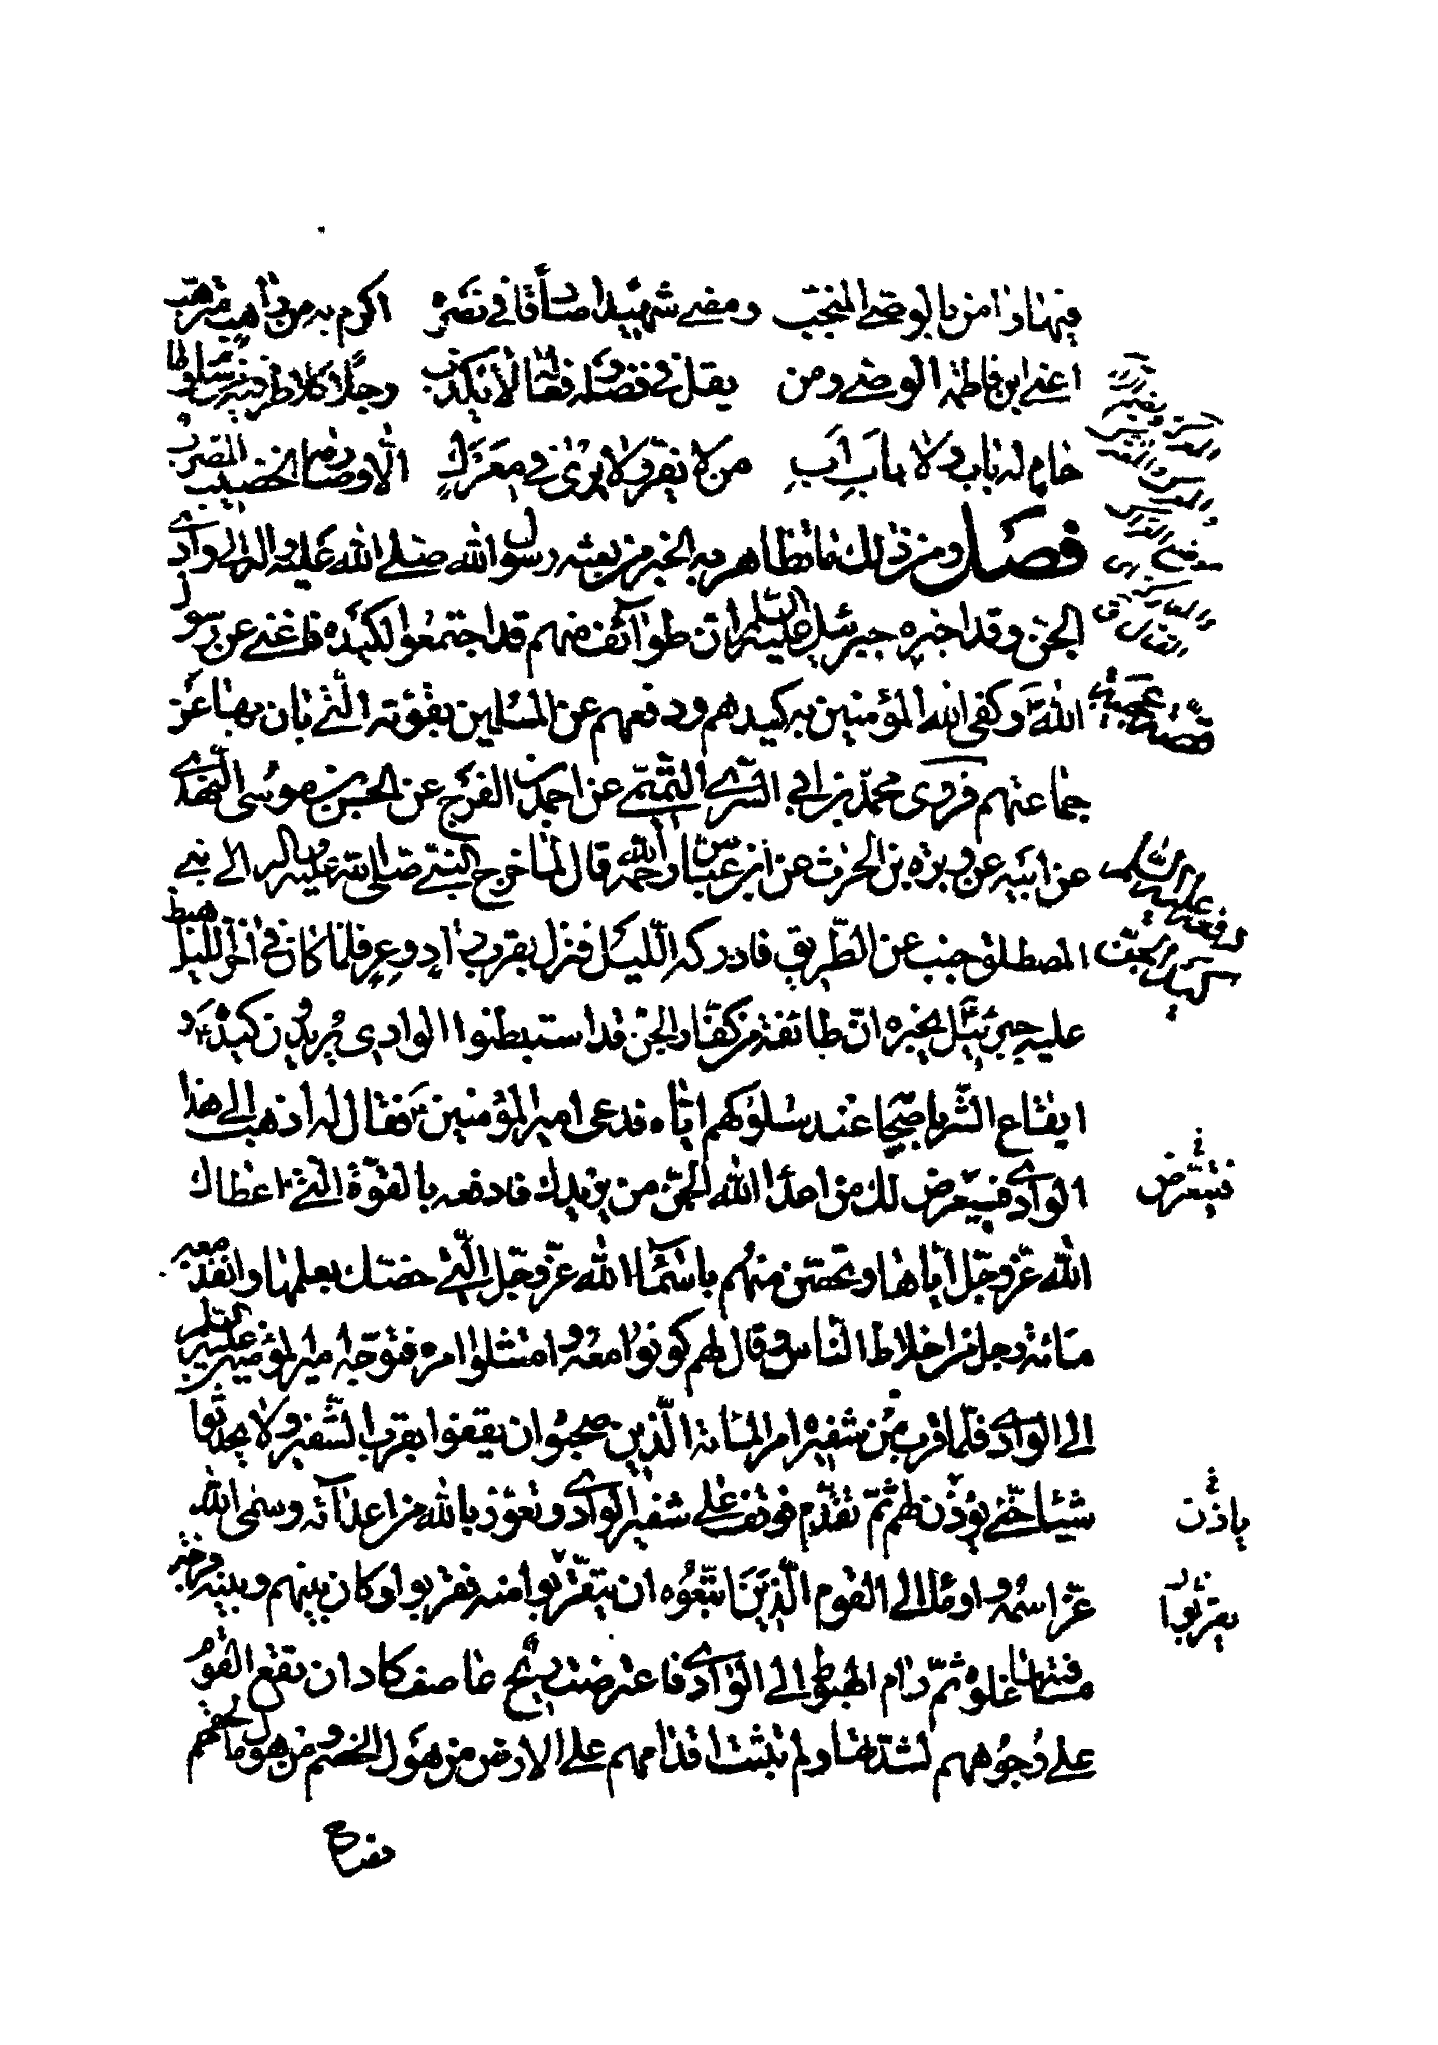 فيها وآمن بالوصي المنتجب ومضى شهيدا صادقا في نصره أكرم به من راهب مترهب
أعني ابن فاطمة الوصي ومن يقل في فضله وفعاله لا يكذب رجلا كلا طرفيه من سام وما
حام له باب ولا باب أب من لا يفر ولا يرى في معرك إلا وصارمه الخضيب المضرب
فصل ومن ذلك ما تظاهر به الخبر من بعثه رسول الله صلى الله عليه وآله إلى وادي
الجن وقد اخبره جبرئيل عليه السلم ان طوائف منهم قد اجتمعوا لكيده فاغنى عن رسول
الله وكفى الله المؤمنين به كيدهم ودفعهم عن المسلمين بقوته التي بان بها عن
جماعتهم فروى محمد بن ابي السري التميمي عن احمد بن الفرج عن الحسن بن موسى النهدي
عن ابيه عن وبرة بن الحرث عن ابن عباس رحمه الله قال لما خرج النبي صلى الله عليه وآله الى بني
المصطلق جنب عن الطريق فادركه الليل فنزل بقرب واد وعر فلما كان في آخر الليل هبط
عليه جبرئيل يخبره ان طائفة من كفار الجن قد استبطنوا الوادي يريدون كيده و
ايقاع الشر باصحابه عند سلوكهم اياه فدعى امير المؤمنين فقال له اذهب الى هذا
الوادي فسيعرض لك من اعداء الله الجن من يريدك فادفعه بالقوة التي اعطاك
الله عز وجل اياها وتحصن منهم باسماء الله عز وجل التي خصك بعلمها وانفذ معه
مائة رجل من اخلاط الناس وقال لهم كونوا معه وامتثلوا امره فتوجه امير المؤمنين عليه السلم
الى الوادي فلما قرب من شفيره امر المائة الذين صحبوه ان يقفوا بقرب الشفير ولا يحدثوا
شيئا حتى يؤذن لهم ثم تقدم فوقف على شفير الوادي وتعوذ بالله من اعدائه وسمى الله
عز اسمه واومأ الى القوم الذين اتبعوه ان يتقربوا منه فقربوا وكان بينهم وبينه فرجة
مسافتها غلوة ثم رام الهبوط الى الوادي فاعترضت ريح عاصف كاد ان يقع القوم
على وجوههم لشدتها ولم تثبت اقدامهم على الارض من هول الخصم ومن هول ما لحقهم
فصاح
قصة عجيبة
في دفعه عليه السلم
كيد الجن
فيتعرض
ياذن
يقربوا